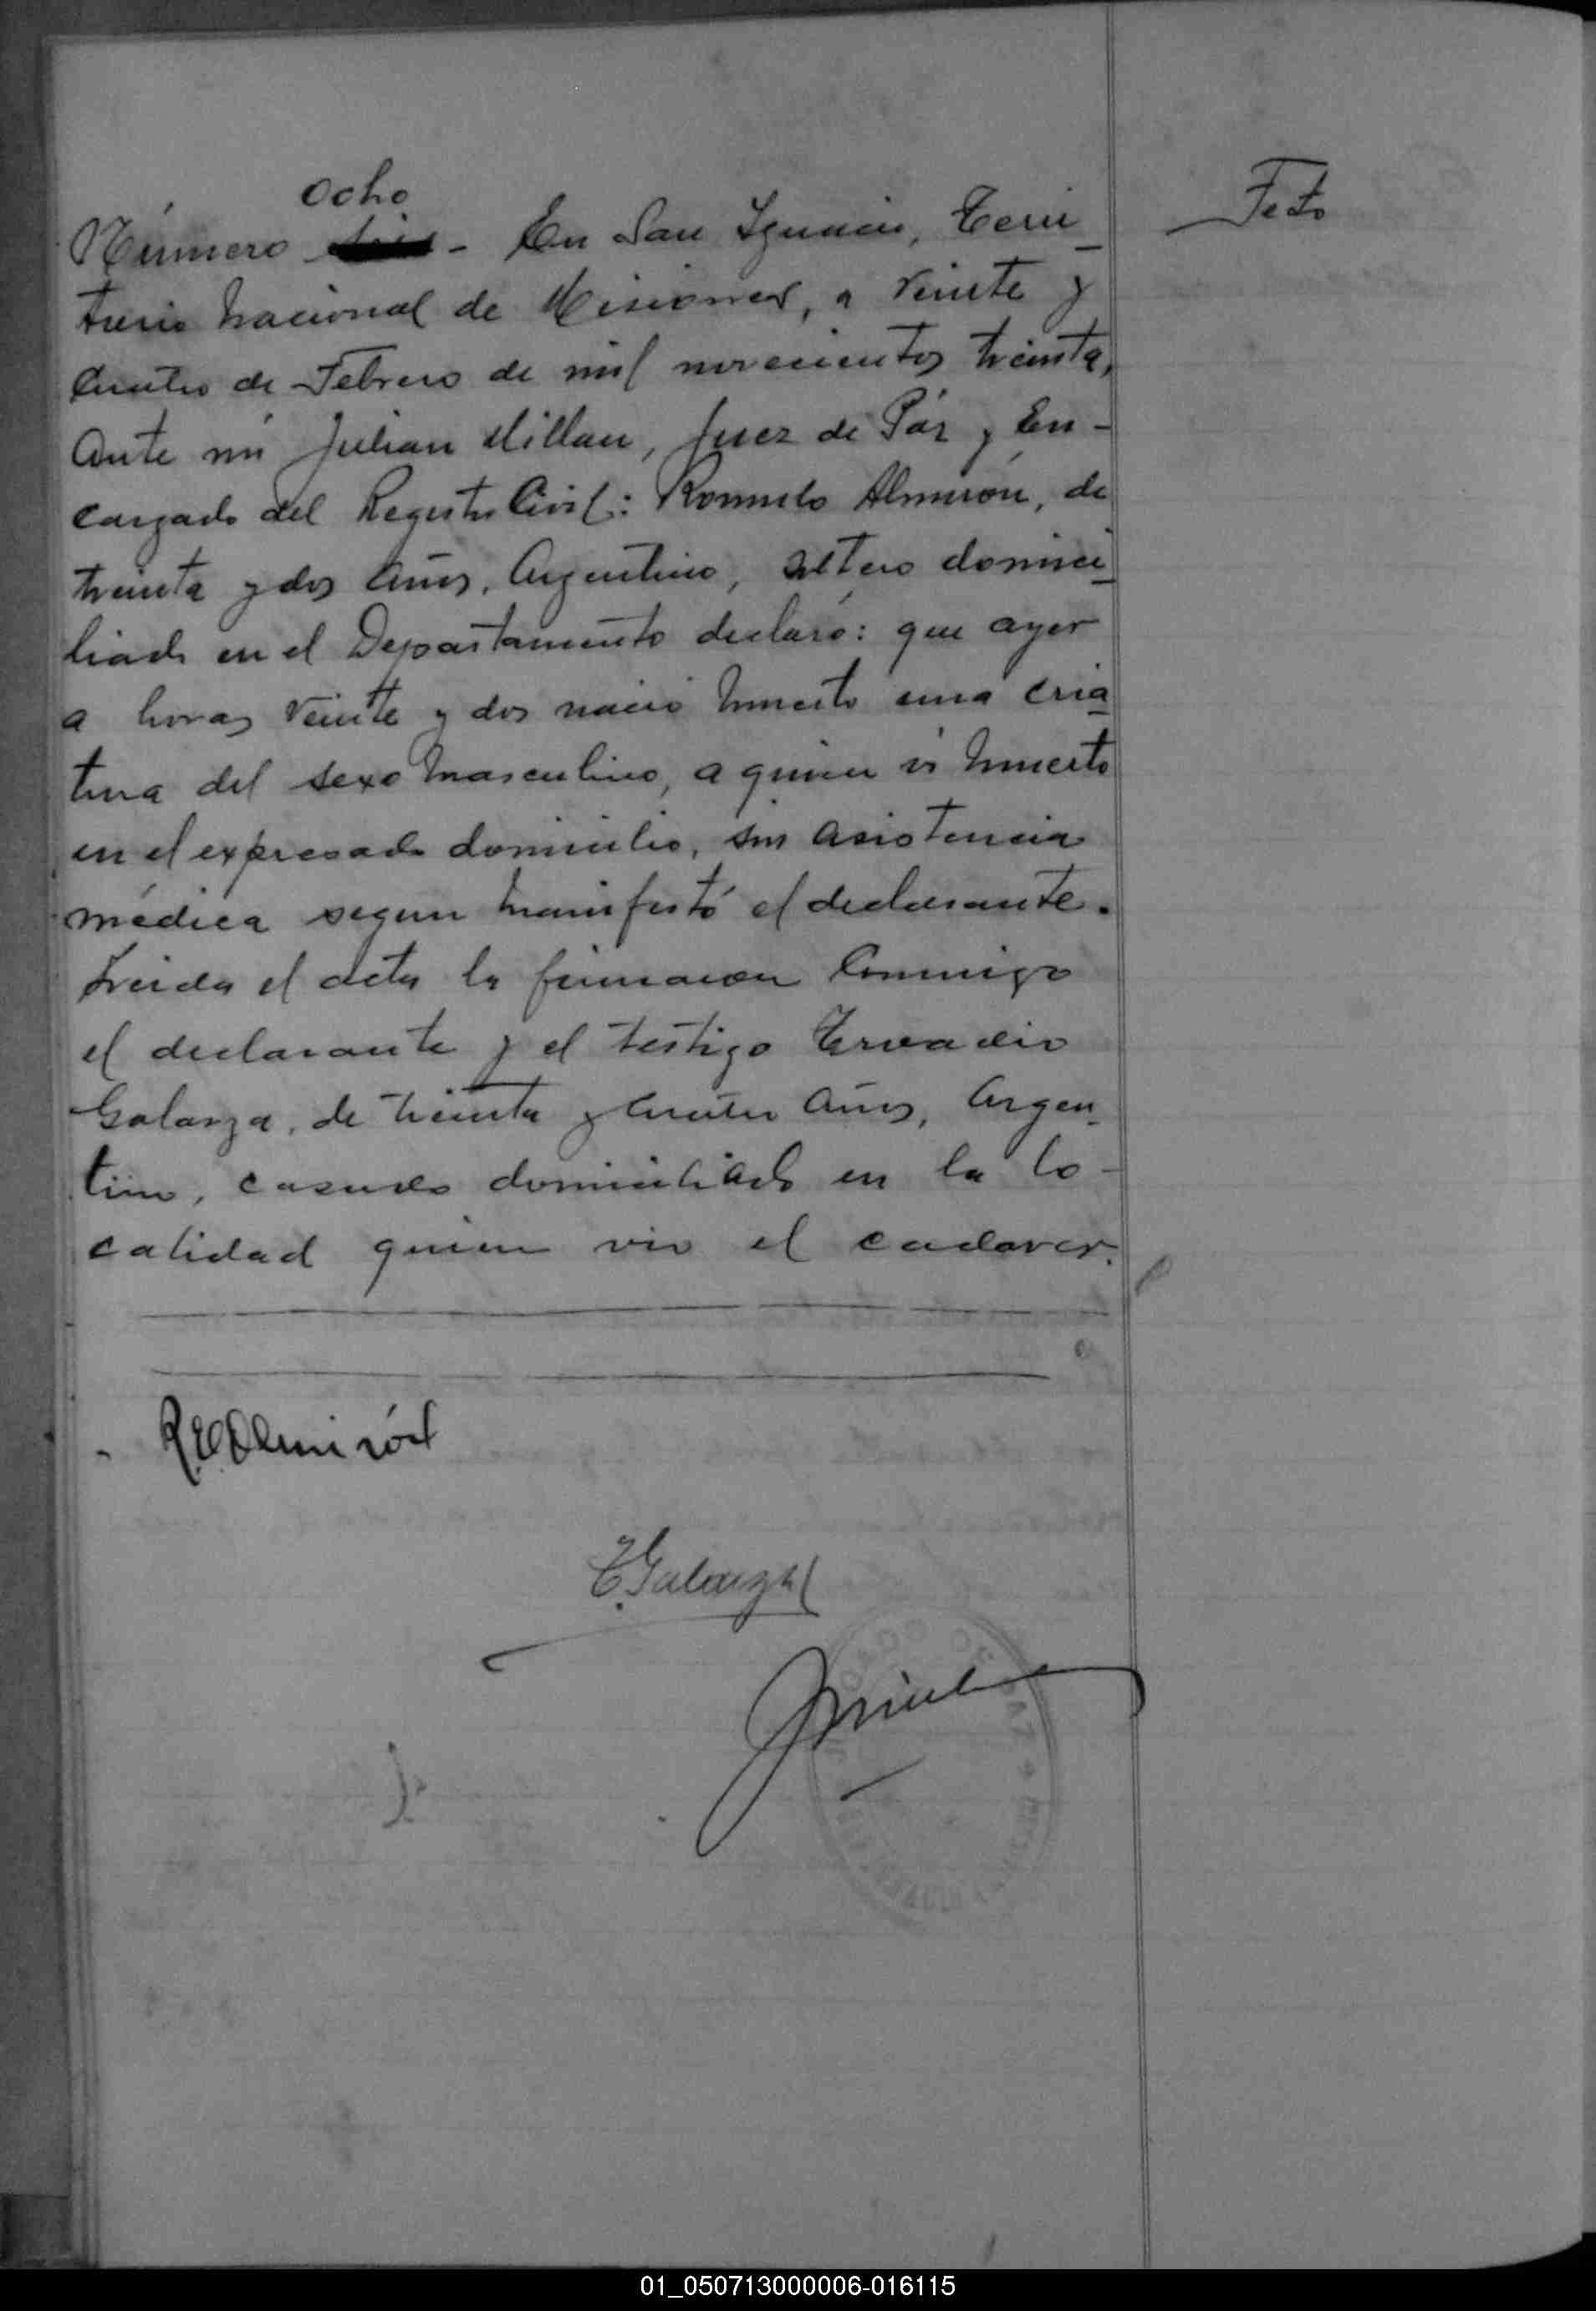 Ocho
Feto
Número - En San Ignacio, Terri
torio Nacional de Misiones, a Veinte y
Cuatro de Febrero de mil novecientos treinta,
Ante mi Julian Millan, Juez de Páz y En-
cargado del Registro Civil: Romulo Almirón, de
treinta y dos años, Argentino, soltero domici
liado en el Departamento declaró: que ayer
a horas Veinte y dos nació muerto una cria
tura del sexo masculino, a quien vi muerto
en el expresado domicilio, sin asistencia
médica segun manifestó el declarante.
Leida el acta la firmaron Conmigo
el declarante y el testigo
Galarza, de treinta y cuatro años, Argen
tino, casado domiciliado en la lo-
calidad quien vio el cadaver.
Almirón
E. Galarza
JMillan
01_050713000006-016115